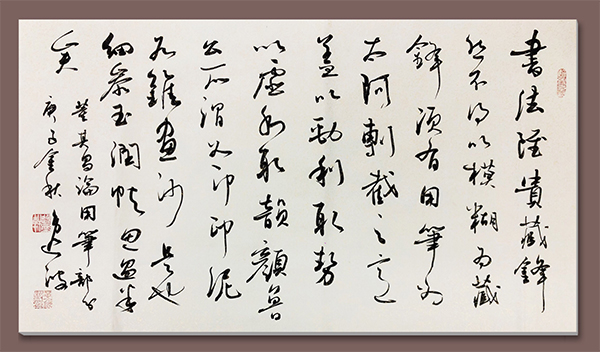 書法雖貴藏鋒
然不得以模糊為藏
鋒須有用筆如
太阿剸截之意
蓋以勁利取勢
以虛和取韻顏魯
公所謂如印印泥
如錐畫沙是也
細參玉潤帖思過半
矣
董其昌論用筆部分
庚子金秋